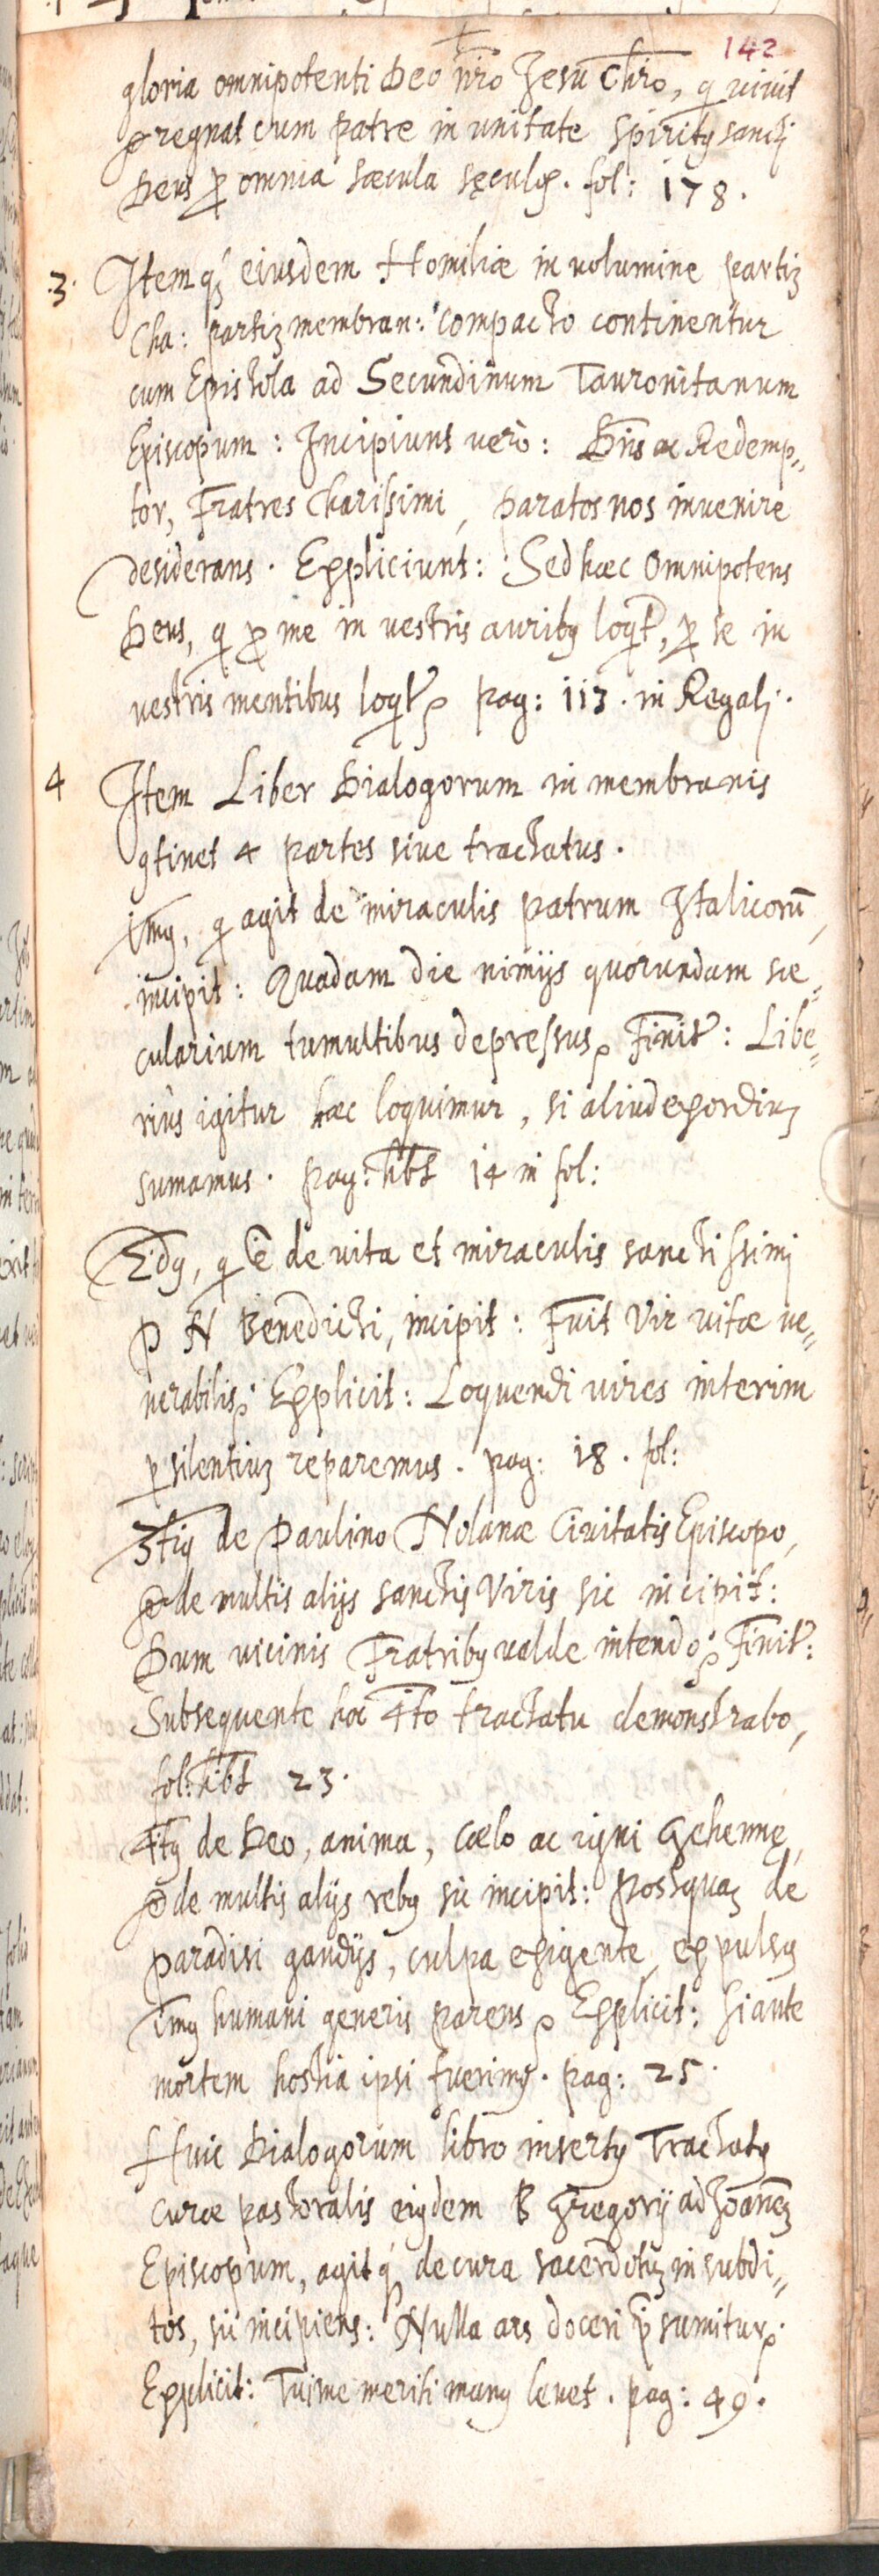 142
gloria omnipotenti Deo nr̃o Jesu Chr̃o, q vivit
& regnat cum patre in unitate spiritꝰ sancti
Deus ꝑ omnia sæcula sęculoꝝ. fol: 178.
.3. Item qꝫ eiusdem Homiliæ in uolumine partiꝫ
Cha: partiꝫ membran: compacto continentur
cum Epistola ad Secundinum Tauronitanum
Episcopum: Incipiunt uerò: Dn̄s ac Redemp„
tor, Fratres Charissimi, paratos nos inuenire
desiderans. Expliciunt: Sed hæc Omnipotens
Deus, q ꝑ me in uestris auribꝰ loqt̃, ꝑ se in
uestris mentibus loqt̃ꝝ pag: 113. in Regali.
4 Item Liber Dialogorum in membranis
ꝯtinet 4 partes siue tractatus.
1mꝰ, q agit de miraculis patrum Italicorũ,
incipit: Quadam die nimijs quorundam sæ„
cularium tumultibus depressus Finit̃: Libe„
rius igitur hæc loquimur, si aliud exordiuꝫ
sumamus. pag: hꝫt 14 in fol:
2dꝰ, q ē de uita et miraculis sanctissimi
P N Benedicti, incipit: Fuit Vir uitæ ue„
nerabilis. Explicit: Loquendi uires interim
ꝑ silentiuꝫ reparemus. pag: 18. fol:
3tiꝰ de Paulino Nolanæ Ciuitatis Episcopo,
& de multis alijs sanctis Viris sic incipit:
Dum uicinis Fratribꝰ ualde intendo: Finit̃:
Subsequente hoc 4to tractatu demonstrabo,
fol: hꝫt 23.
4tꝰ de Deo, anima, Cœlo ac igni Gehennę,
& de multis alijs rebꝰ sic incipit: Postquaꝫ de
paradisi gaudijs, culpa exigente, expulsꝰ
1mꝰ humani generis parens Explicit: Si ante
mortem hostia ipsi fuerimꝰ. pag: 25.
Huic Dialogorum libro insertꝰ Tractatꝰ
curæ pastoralis eiꝰdem B Gregorij ad Joanneꝫ
Episcopum, agit qꝫ de cura sacerdotuꝫ in subdi„
tos, sic incipiens: Nulla ars doceri p̄sumitur.
Explicit: Tui me meriti manꝰ leuet. pag: 49.